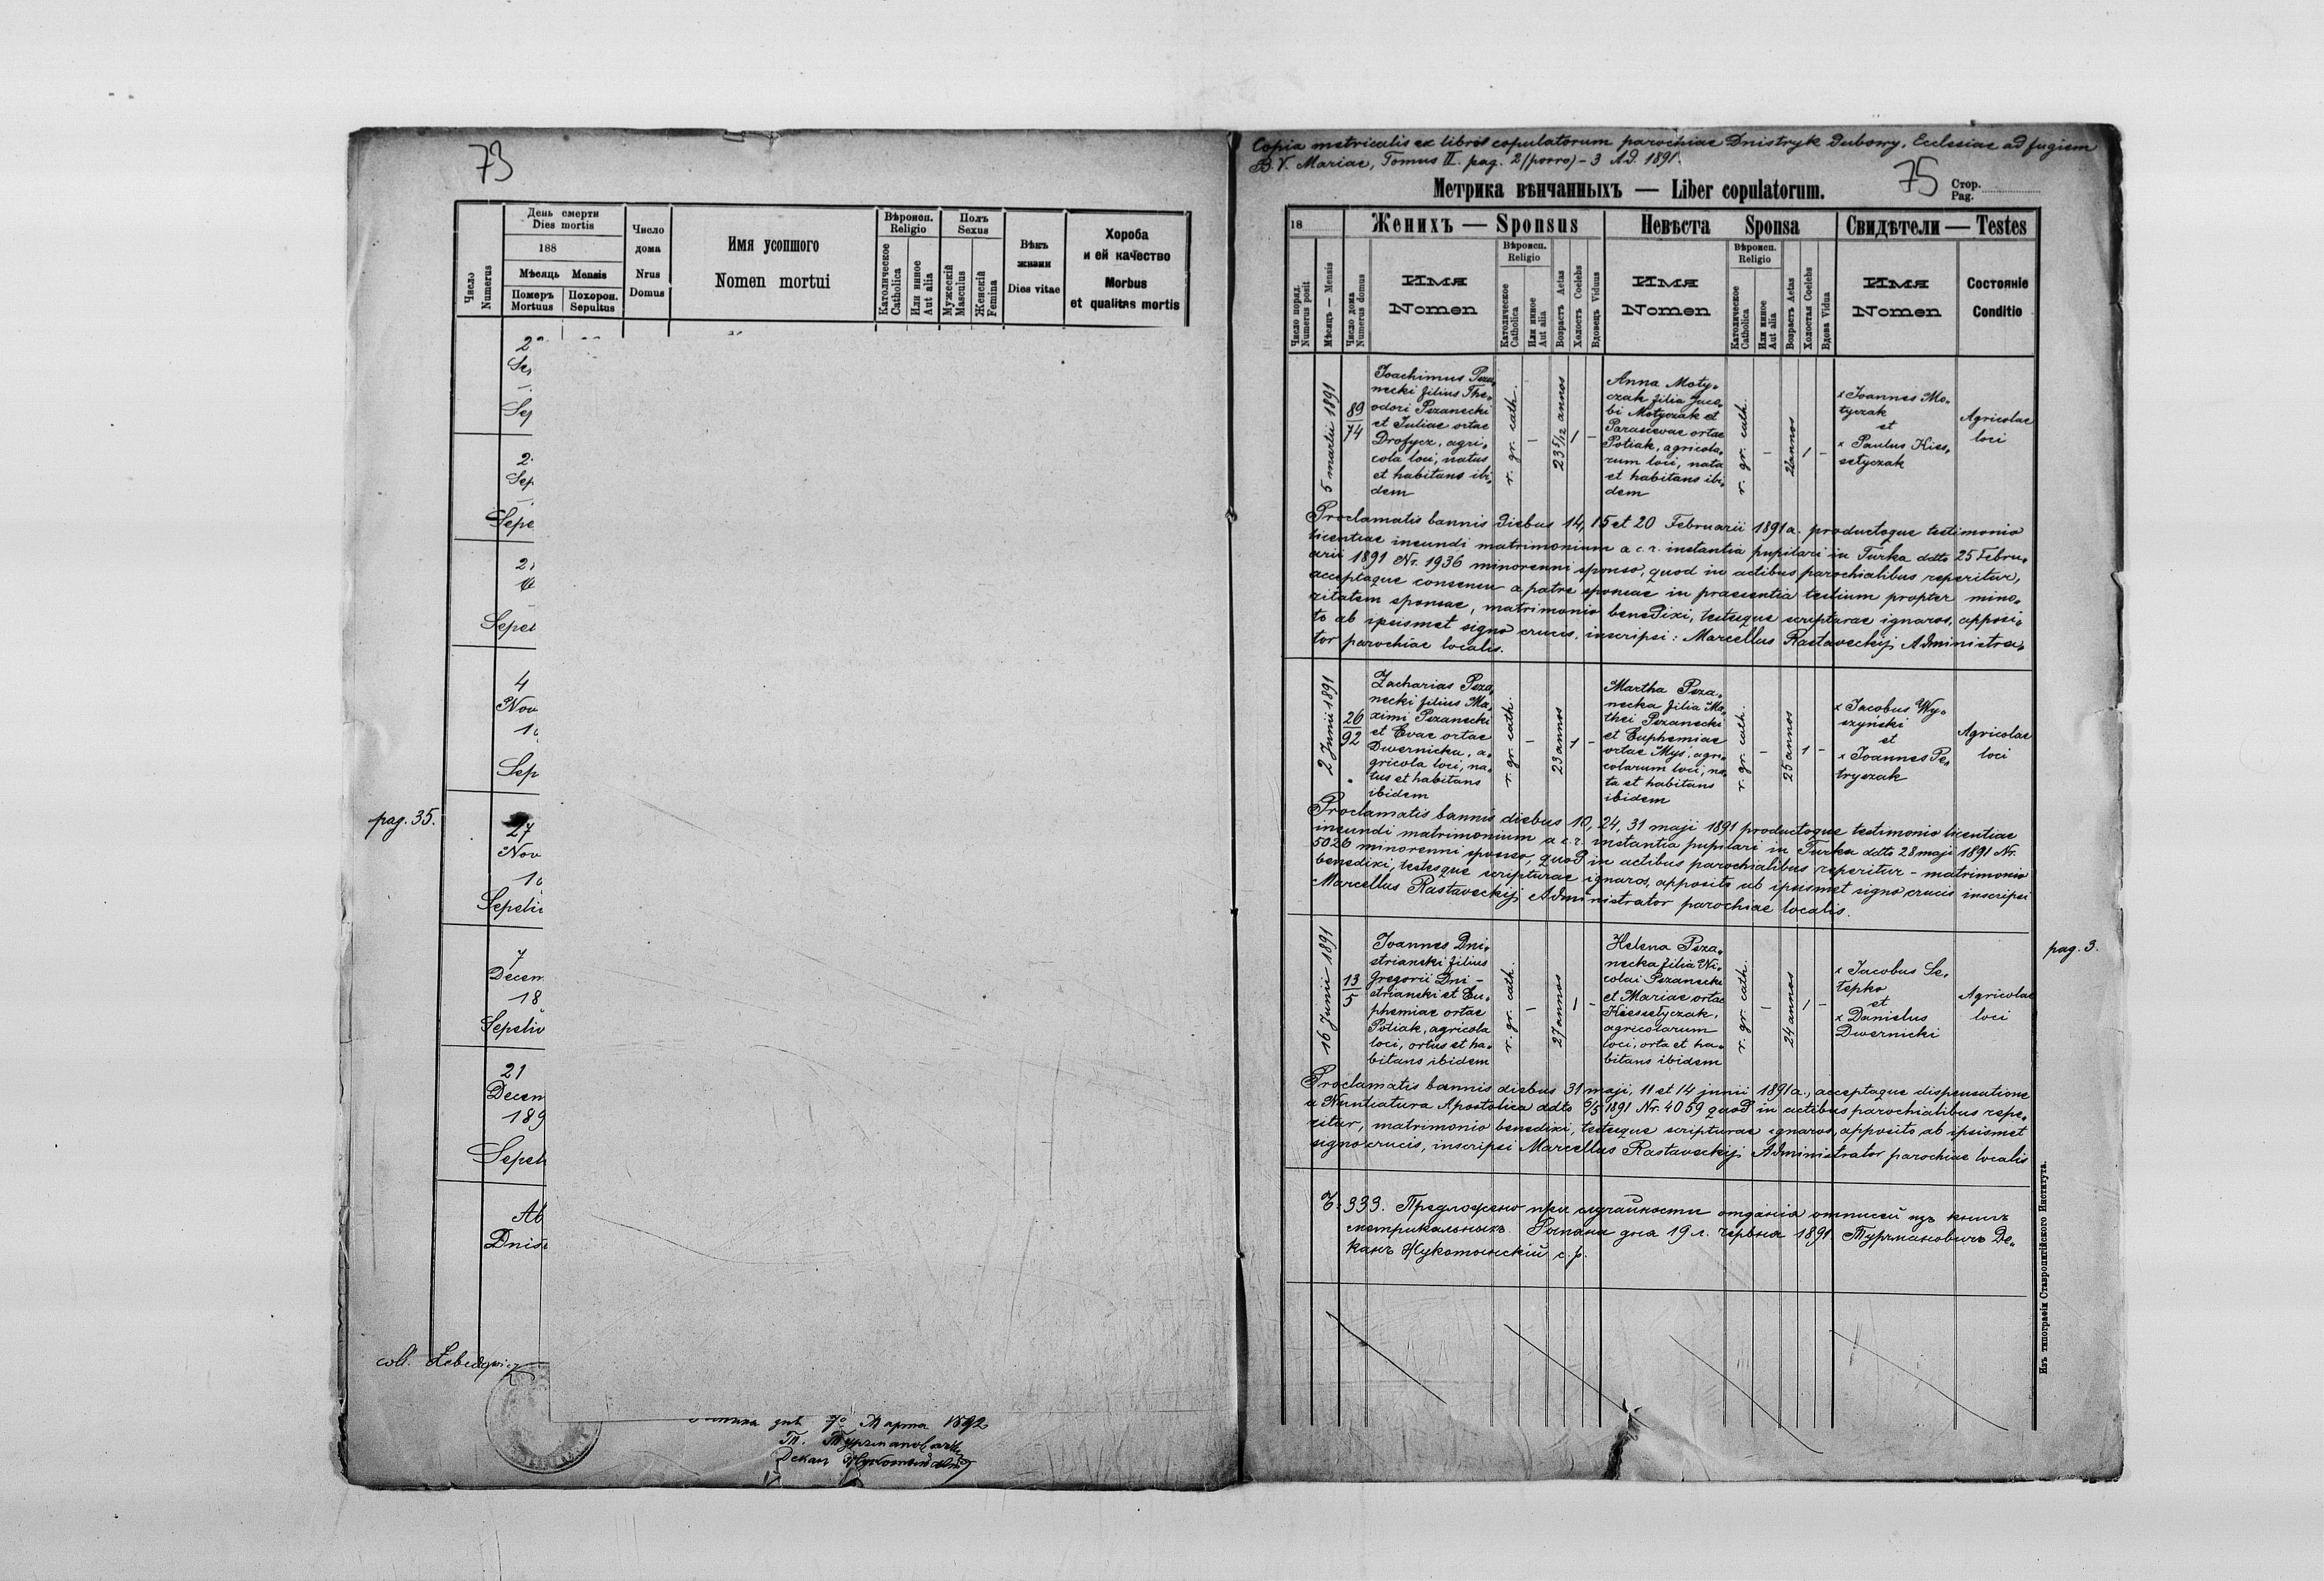 73
Число
Numerus
День смерти
Dies mortis
188
Мѣсяць Mensis
Померъ
Mortuus
Похорон.
Sepultus
Число
дома
Nrus
Domus
Имя усопшого
Nomen mortui
Вѣроисп.
Religio
Католическое
Catholica
Или иное
Aut alia
Полъ
Sexus
Мужескій
Masculus
Женскій
Femina
Вѣкъ
жизни
Dies vitae
Хороба
и ей качество
Morbus
et qualitas mortis
Sep
2
Sep
Sepe
4
Nov
Sep
pag. 35.
27
Nov
Sepeliv
7
Decem
18
Sepeliv
21
Decem
189
Sepeli
Ab
Dnist
coll.
днѣ 7о Марта 1892
Декан
Copia metricalis ex libris copulatorum parochiae Dnistryk Dubowy, Ecclesiae ad fugiem
B. V. Mariae, Tomus II. pag. 2 (porro) – 3 A.D. 1891.
Метрика вѣнчанныхъ — Liber copulatorum.
75
Стор.
Pag.
18
Женихъ — Sponsus
Невѣста Sponsa
Свидѣтели — Testes
Число поряд.
Numerus posit
Мѣсяць — Mensis
Число дома
Numerus domus
Имя
Nomen
Вѣроисп.
Religio
Католическое
Catholica
Или иное
Aut alia
Возрастъ Aetas
Холостъ Coelebs
Вдовець Viduus
Имя
Nomen
Вѣроисп.
Religio
Католическое
Catholica
Или иное
Aut alia
Возрастъ Aetas
Холостая Coelebs
Вдова Vidua
Имя
Nomen
Состояніе
Conditio
5 martii 1891
89
74
Joachimus Peza-
necki filius The-
odori Pezanecki
et Juliae ortae
Drofycz, agri-
cola loci, natus
et habitans ibi-
dem
r. gr. cath.
–
23 5/12 annos
1
–
Anna Moty-
czak filia Jaco-
bi Motyczak et
Parascevae ortae
Potiak, agricola-
rum loci, nata
et habitans ibi-
dem
r. gr. cath.
–
annos
1
–
x Joannes Mo-
tyczak
et
x Paulus Kies-
setyczak
Agricolae
loci
Proclamatis bannis diebus 14, 15 et 20 Februarii 1891 a. productoque testimonio
licentiae ineundi matrimonium a c. r. instantia pupilari in Turka ddto 25 Febru-
arii 1891 Nr. 1936 minorenni sponso, quod in actibus parochialibus reperitur,
acceptaque consensu a patre sponsae in praesentia testium propter mino-
ritatem sponsae, matrimonio benedixi, testesque scripturae ignaros, apposi-
to ab ipsismet signo crucis, inscripsi: Marcellus Rastaveckij Administra-
tor parochiae localis.
2 Junii 1891
26
92
Zacharias Peza-
necki filius Ma-
ximi Pezanecki
et Evae ortae
Dwernicka, a-
gricola loci, na-
tus et habitans
ibidem
r. gr. cath.
–
23 annos
1
–
Martha Peza-
necka filia Ma-
thei Pezanecki
et Euphemiae
ortae Mys', agri-
colarum loci, na-
ta et habitans
ibidem
r. gr. cath.
–
25 annos
1
–
x Jacobus Wy-
szyński
et
x Joannes Pe-
tryszak
Agricolae
loci
Proclamatis bannis diebus 10, 24, 31 maji 1891 productoque testimonio licentiae
ineundi matrimonium a c. r. instantia pupilari in Turka ddto 28 maji 1891 Nr.
5026 minorenni sponso, quod in actibus parochialibus reperitur – matrimonio
benedixi, testesque scripturae ignaros, apposito ab ipsismet signo crucis inscripsi
Marcellus Rastaveckij Administrator parochiae localis.
16 Junii 1891
13
5
Joannes Dni-
strianski filius
Gregorii Dni-
strianski et Eu-
phemiae ortae
Potiak, agricola
loci, ortus et ha-
bitans ibidem
r. gr. cath.
–
27 annos
1
–
Helena Peza-
necka filia Ni-
colai Pezanecki
et Mariae ortae
Kiessetyczak,
agricolarum
loci, orta et ha-
bitans ibidem
r. gr. cath.
–
24 annos
1
–
x Jacobus Se-
tepko
et
x Danielus
Dwernicki
Agricolae
loci
pag. 3.
Proclamatis bannis diebus 31 maji, 11 et 14 junii 1891 a., acceptaque dispensatione
a Nuntiatura Apostolica ddto 6/5 1891 Nr. 4059 quod in actibus parochialibus repe-
ritur, matrimonio benedixi, testesque scripturae ignaros, apposito ab ipsismet
signo crucis, inscripsi Marcellus Rastaveckij Administrator parochiae localis
Ч. 333. Предложено при случайности отданія отписей изъ книгъ
метрикальныхъ дня 19 л. червня 1891 Турчмановичъ Де-
канъ Жукотинскій с. р.
Изъ типографіи Ставропигійского Института.